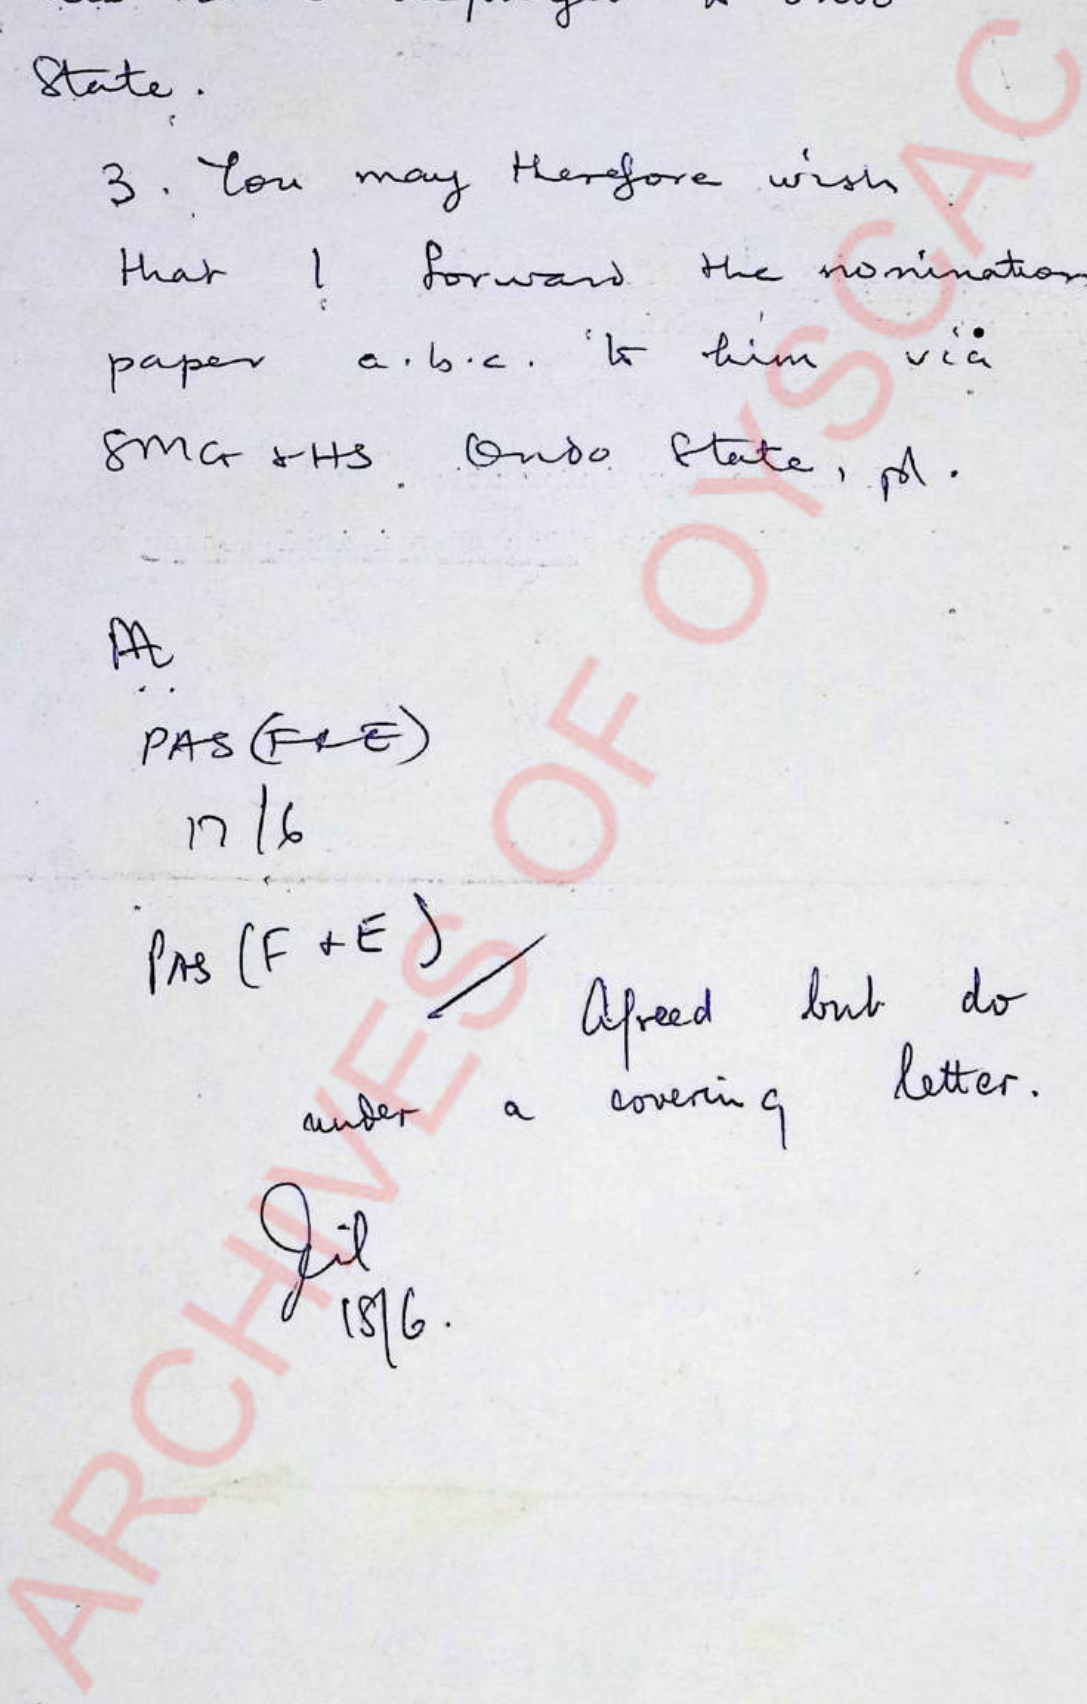 State.
3. You may therefore wish
that I forward the nomination
paper a.b.c. to him via
SMG & HS Ondo State, pl.
PAS (F & E)
17/6
PAS (F & E)
Agreed but do
under a covering letter.
18/6.
ARCHIVES OF OYSCAC